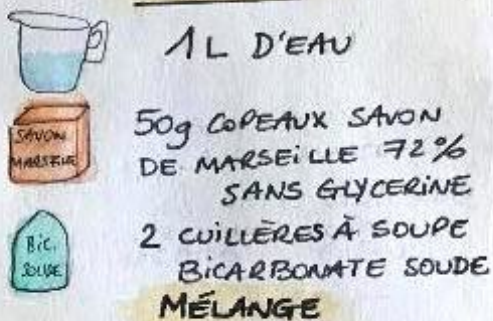 1L D'EAU
SAVON
MARSEILLE
50g COPEAUX SAVON
DE MARSEILLE 72%
SANS GLYCERINE
BIC.
SOUDE
2 CUILLÈRES À SOUPE
BICARBONATE SOUDE
MÉLANGE